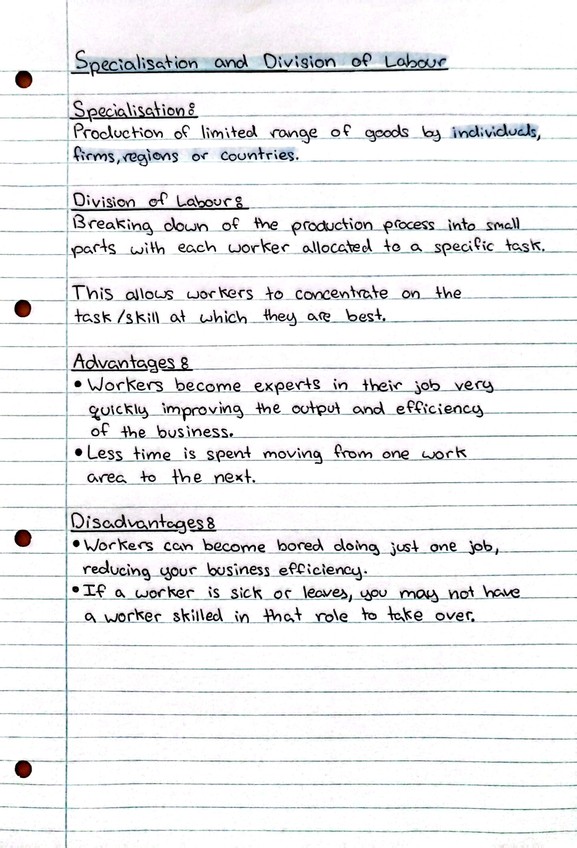 Specialisation and Division of Labour
Specialisation:
Production of limited range of goods by individuals,
firms, regions or countries.
Division of Labour:
Breaking down of the production process into small
parts with each worker allocated to a specific task.
This allows workers to concentrate on the
task/skill at which they are best.
Advantages:
• Workers become experts in their job very
quickly improving the output and efficiency
of the business.
• Less time is spent moving from one work
area to the next.
Disadvantages:
• Workers can become bored doing just one job,
reducing your business efficiency.
• If a worker is sick or leaves, you may not have
a worker skilled in that role to take over.